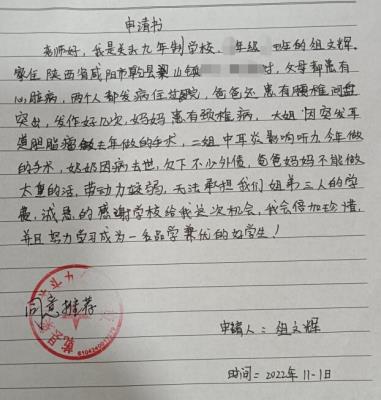 申请书
老师好,我是关头九年制学校,年级班的组文辉。
家住陕西省咸阳市乾县梁山镇村,父母都患有
心脏病,两个人都发病住过院,爸爸还患有腰椎间盘
突出,发作好几次,妈妈患有颈椎病,大姐因突发耳
道胆脂瘤做去年做的手术,二姐中耳炎影响听力今年做
的手术,奶奶因病去世,欠下不少外债,爸爸妈妈不能做
太重的活,劳动力较弱,无法承担我们姐弟三人的学
费,诚恳的感谢学校给我这次机会,我会倍加珍惜,
并且努力学习成为一名品学兼优的好学生!
同意推荐
申请人:组文辉
时间:2022年11-1日